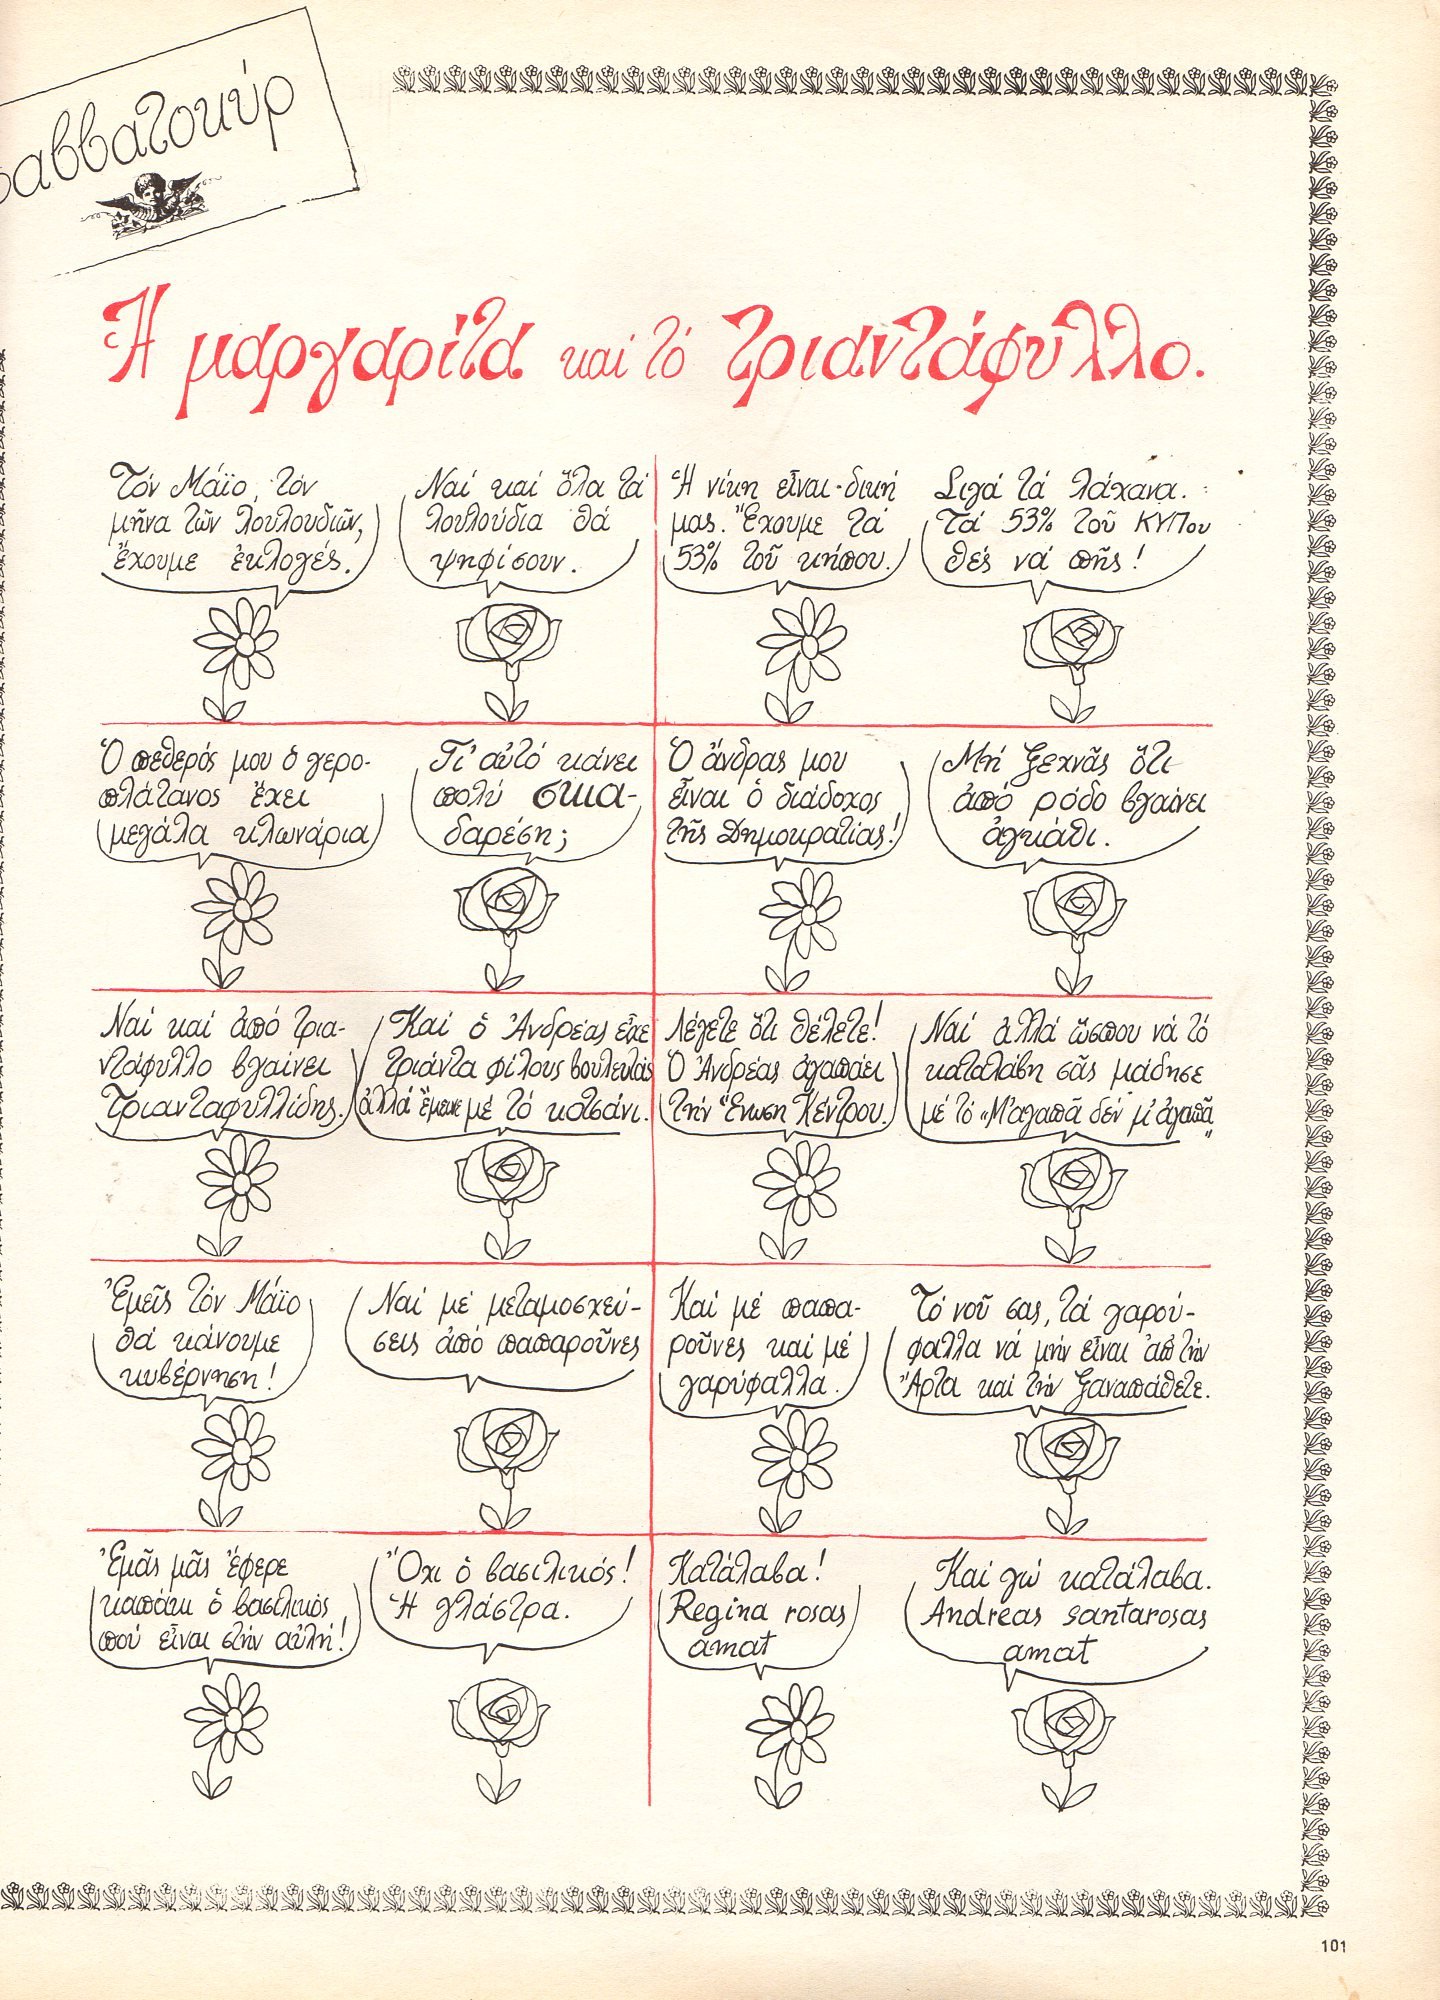 σαββατοκύρ
Ἡ μαργαρίτα καί τό τριαντάφυλλο.
Τόν Μάϊο, τόν
μῆνα τῶν λουλουδιῶν,
ἔχουμε ἐκλογές.
Ναί καί ὅλα τά
λουλούδια θά
ψηφίσουν.
Ἡ νίκη εἶναι δική
μας. Ἔχουμε τά
53% τοῦ κήπου.
Σιγά τά λάχανα.
Τά 53% τοῦ ΚΥΠου
θές νά πῆς!
Ὁ πεθερός μου ὁ γερο-
πλάτανος ἔχει
μεγάλα κλωνάρια
Γι' αὐτό κάνει
πολύ σκια-
δαρέση;
Ὁ ἄνδρας μου
εἶναι ὁ διάδοχος
τῆς Δημοκρατίας!
Μή ξεχνᾶς ὅτι
ἀπό ρόδο βγαίνει
ἀγκάθι.
Ναί καί ἀπό τρια-
ντάφυλλο βγαίνει
Τριανταφυλλίδης.
Καί ὁ Ἀνδρέας εἶχε
τριάντα φίλους βουλευτάς
ἀλλά ἔμεινε μέ τό κοτσάνι.
Λέγετε ὅτι θέλετε!
Ὁ Ἀνδρέας ἀγαπάει
τήν Ἕνωση Κέντρου.
Ναί ἀλλά ὥσπου νά τό
καταλάβη σᾶς μάδησε
μέ τό «Μ'ἀγαπᾶ δέν μ' ἀγαπᾶ"
Ἐμεῖς τόν Μάϊο
θά κάνουμε
κυβέρνηση!
Ναί μέ μεταμοσχεύ-
σεις ἀπό παπαροῦνες
Καί μέ παπα-
ροῦνες καί μέ
γαρύφαλλα.
Τό νοῦ σας, τά γαρού-
φαλλα νά μήν εἶναι ἀπ' τήν
Ἄρτα καί τήν ξαναπάθετε.
Ἐμᾶς μᾶς ἔφερε
καπάκι ὁ βασιλικός
πού εἶναι στήν αὐλή!
Ὄχι ὁ βασιλικός!
Ἡ γλάστρα.
Κατάλαβα!
Regina rosas
amat
Καί γώ κατάλαβα.
Andreas santarosas
amat
101